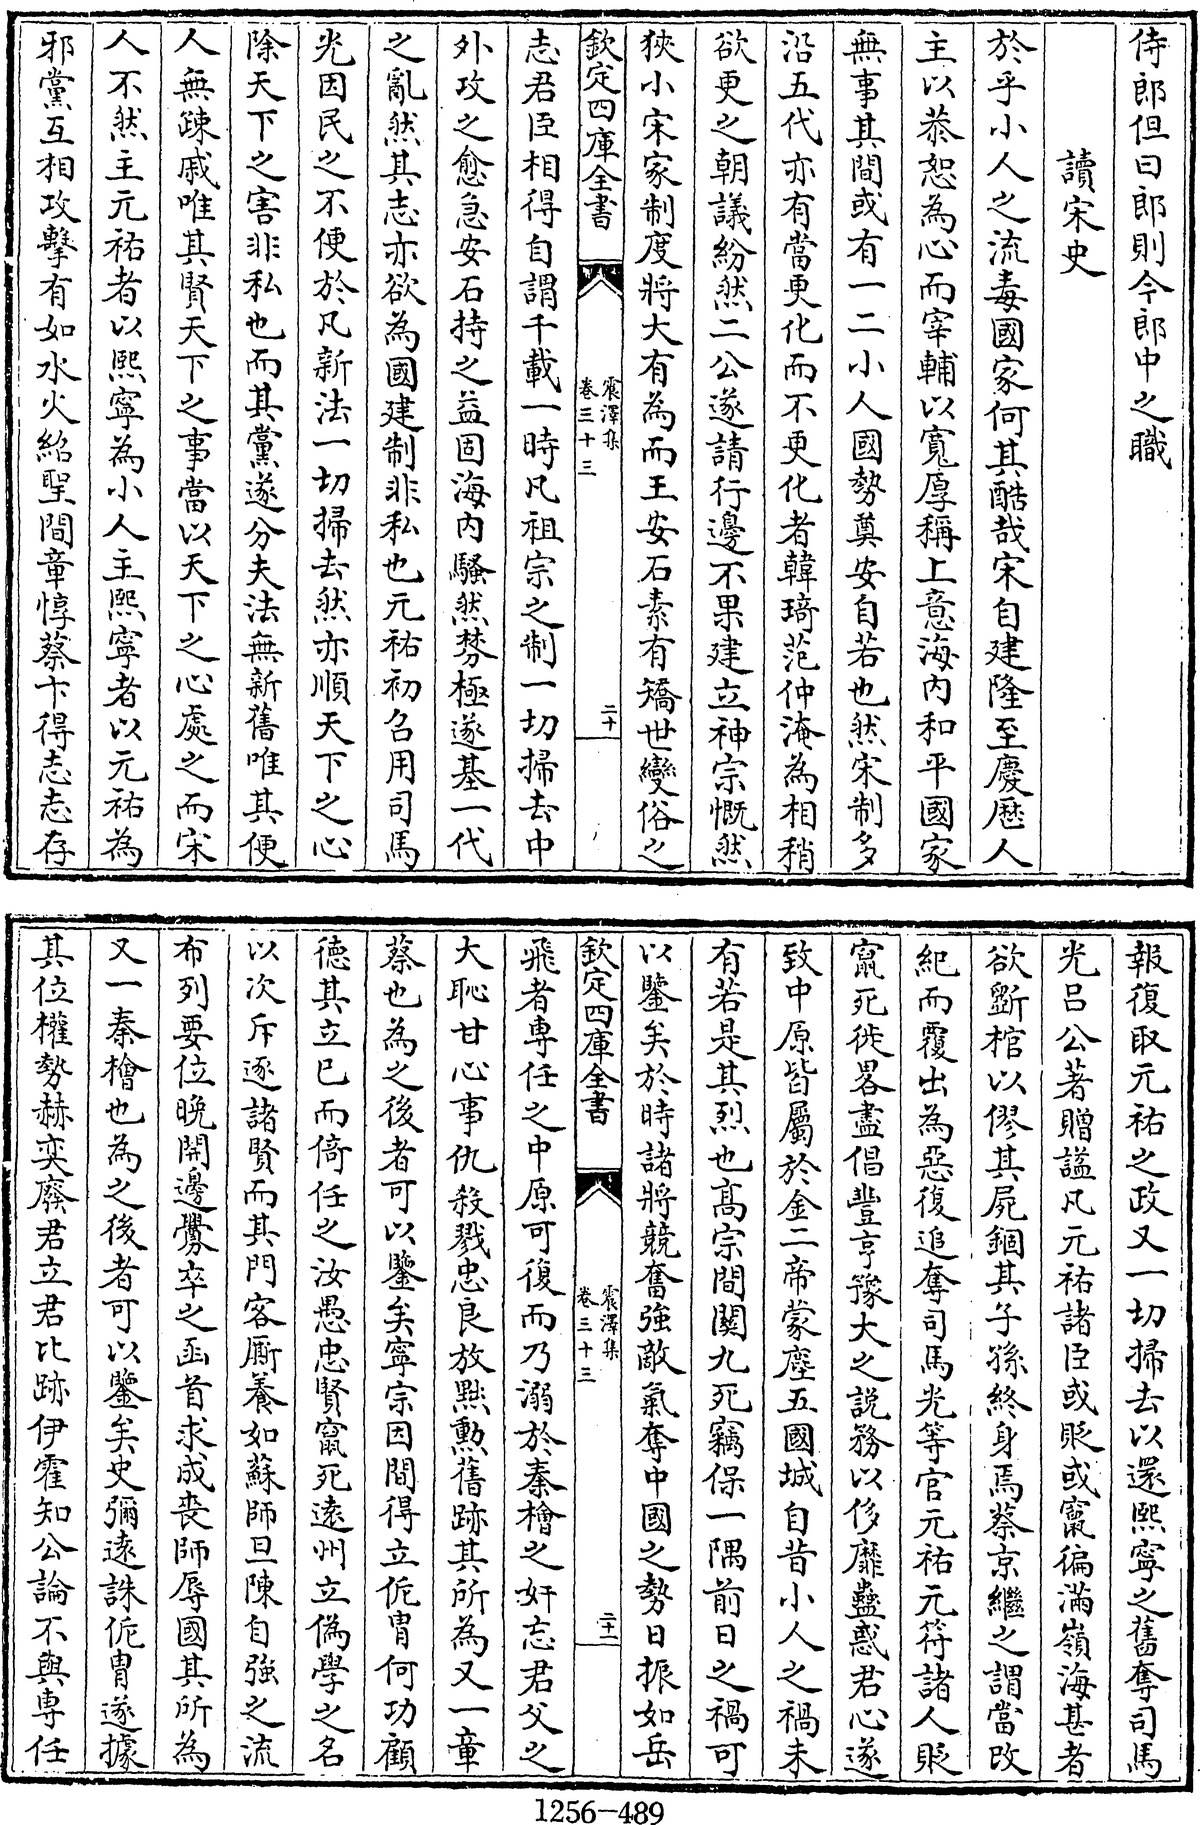 侍郎但曰郎則今郎中之職
讀宋史
於乎小人之流毒國家何其酷哉宋自建隆至慶厯人
主以恭恕為心而宰輔以寛厚稱上意海内和平國家
無事其間或有一二小人國勢奠安自若也然宋制多
沿五代亦有當更化而不更化者韓琦范仲淹為相稍
欲更之朝議紛然二公遂請行邊不果建立神宗慨然
狹小宋家制度將大有為而王安石素有矯世變俗之
欽定四庫全書
震澤集
卷三十三
二十
志君臣相得自謂千載一時凡祖宗之制一切掃去中
外攻之愈急安石持之益固海内騷然棼極遂基一代
之亂然其志亦欲為國建制非私也元祐初召用司馬
光因民之不便於凡新法一切掃去然亦順天下之心
除天下之害非私也而其黨遂分夫法無新舊唯其便
人無踈戚唯其賢天下之事當以天下之心處之而宋
人不然主元祐者以熙寧為小人主熙寧者以元祐為
邪黨互相攻擊有如水火紹聖間章惇蔡卞得志志存
報復取元祐之政又一切掃去以還熙寧之舊奪司馬
光吕公著贈諡凡元祐諸臣或貶或竄徧滿嶺海甚者
欲斵棺以僇其屍錮其子孫終身焉蔡京繼之謂當改
紀而覆出為惡復追奪司馬光等官元祐元符諸人貶
竄死徙畧盡倡豐亨豫大之説務以侈靡蠱惑君心遂
致中原皆屬於金二帝蒙塵五國城自昔小人之禍未
有若是其烈也髙宗間關九死竊保一隅前日之禍可
以鑒矣於時諸將競奮強敵氣奪中國之勢日振如岳
欽定四庫全書
震澤集
卷三十三
二十一
飛者専任之中原可復而乃溺於秦檜之奸忘君父之
大恥甘心事仇殺戮忠良放黜勲舊跡其所為又一章
蔡也為之後者可以鑒矣寧宗因間得立侂胄何功顧
德其立已而倚任之汝愚忠賢竄死逺州立偽學之名
以次斥逐諸賢而其門客厮養如蘇師旦陳自強之流
布列要位晚開邊釁卒之函首求成喪師辱國其所為
又一秦檜也為之後者可以鑒矣史彌逺誅侂胄遂據
其位權勢赫奕廢君立君比跡伊霍知公論不與専任
1256-489